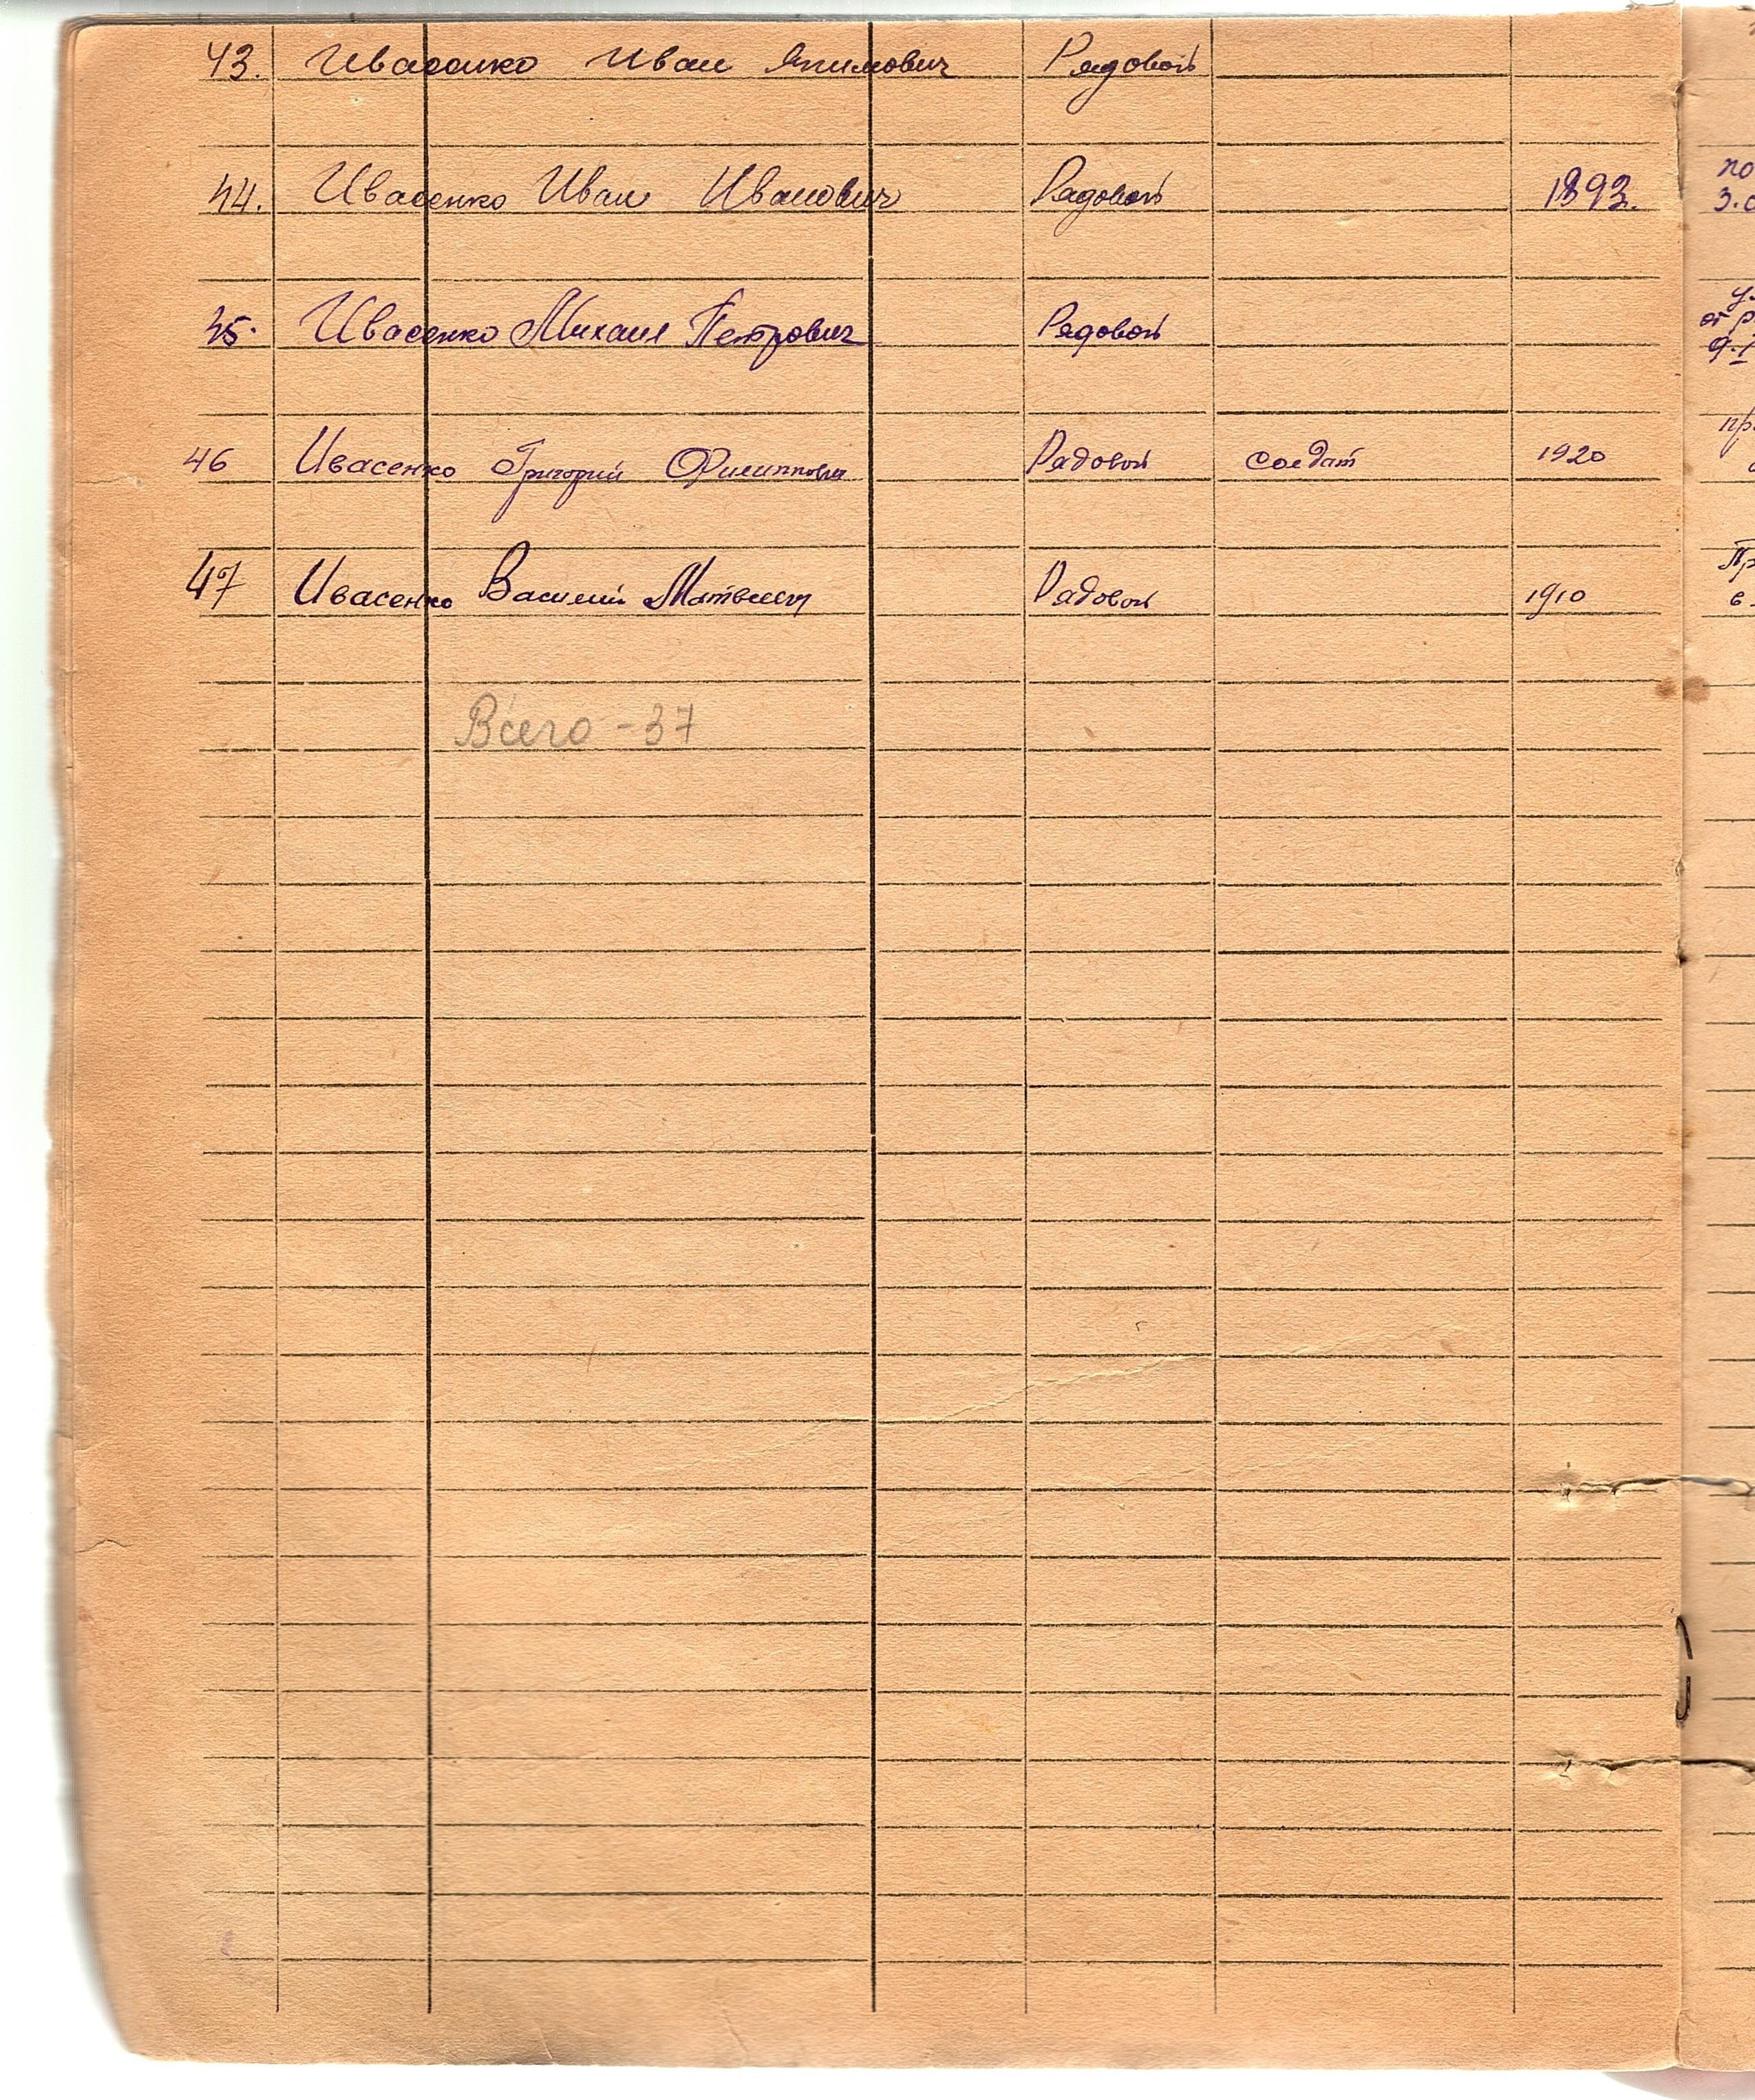 43. Ивасенко Иван Якимович Рядовой
44. Ивасенко Иван Иванович Рядовой 1893.
по
3.
45. Ивасенко Михаил Петрович Рядовой
от
46 Ивасенко Григорий Филиппович Рядовой солдат 1920
47 Ивасенко Василий Матвеевич Рядовой 1910
Всего - 37